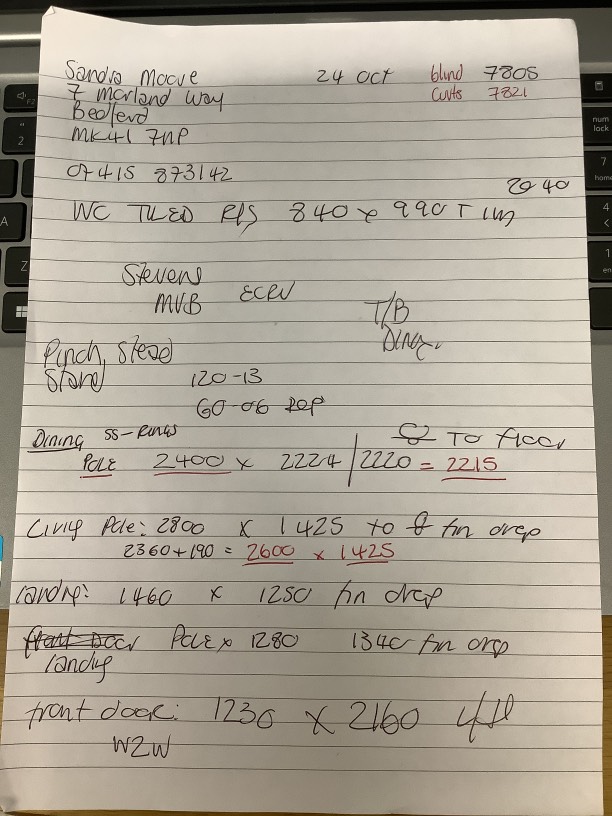 Sandra Moove 24 Oct blind 7805
7 Morland Way curts 7821
Bedford
MK41 7NP
07415 873142
20 40
WC TILED R/S 840 x 990 T
Stevens
MVB ECRU
T/B
Pinch Stead
120-13
60-06 REP
Dining SS-Rings TO floor
POLE 2400 x 2224 / 2220 = 2215
Living Pole: 2800 x 1425 to fin drop
2360+190 = 2600 x 1425
landing: 1460 x 1250 fin drop
front Door Pole x 1280 1340 fin drop
landing
front door: 1230 x 2160
W2W